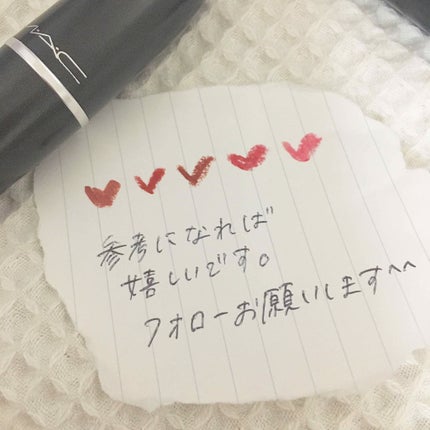 MAC
参考になれば
嬉しいです。
フォローお願いします^^